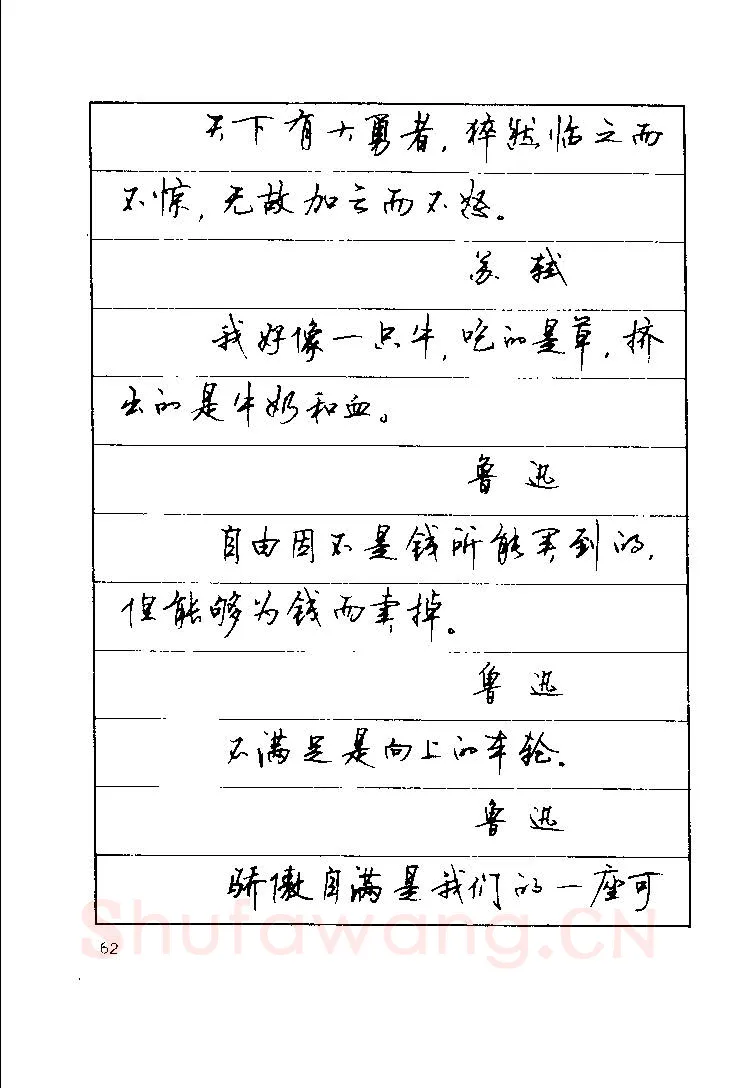 天下有大勇者，猝然临之而
不惊，无故加之而不怒。
苏轼
我好像一只牛，吃的是草，挤
出的是牛奶和血。
鲁迅
自由因不是钱所能买到的，
但能够为钱而卖掉。
鲁迅
不满足是向上的车轮。
鲁迅
骄傲自满是我们的一座可
62
Shufawang.CN